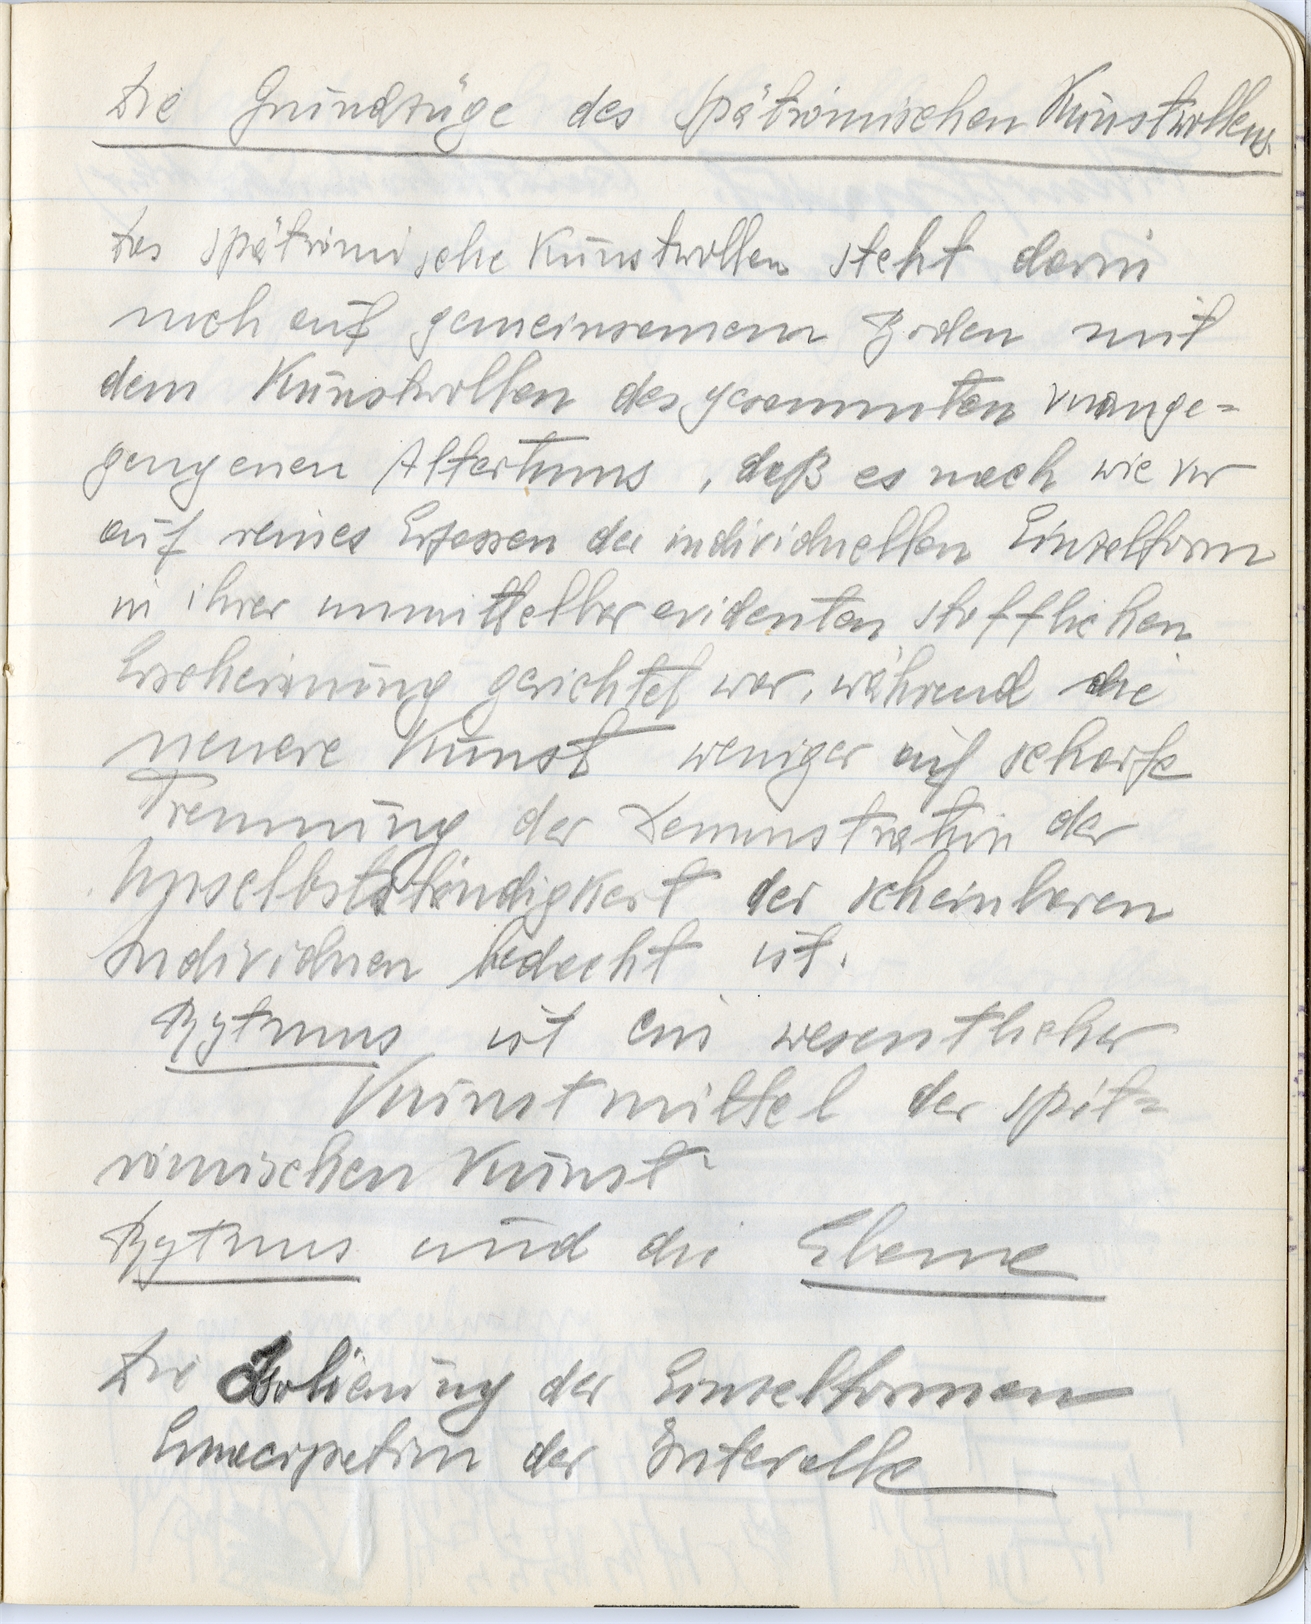 Die Grundzüge des spätrömischen Kunstwollens
Das spätrömische Kunstwollen steht darin
noch auf gemeinsamem Boden mit
dem Kunstwollen des gesammten vorange=
gangenen Altertums, daß es nach wie vor
auf reines Erfassen der individuellen Einzelform
in ihrer unmittelbar evidenten stofflichen
Erscheinung gerichtet war, während die
neuere Kunst weniger auf scharfe
Trennung der Demonstration der
Unselbstständigkeit der scheinbaren
Individuen bedacht ist.
Rytmus ist ein wesentlicher
Kunstmittel der spät=
römischen Kunst
Rytmus und die Ebene
Die Isolierung der Einzelformen
Emancipation der Intervalle